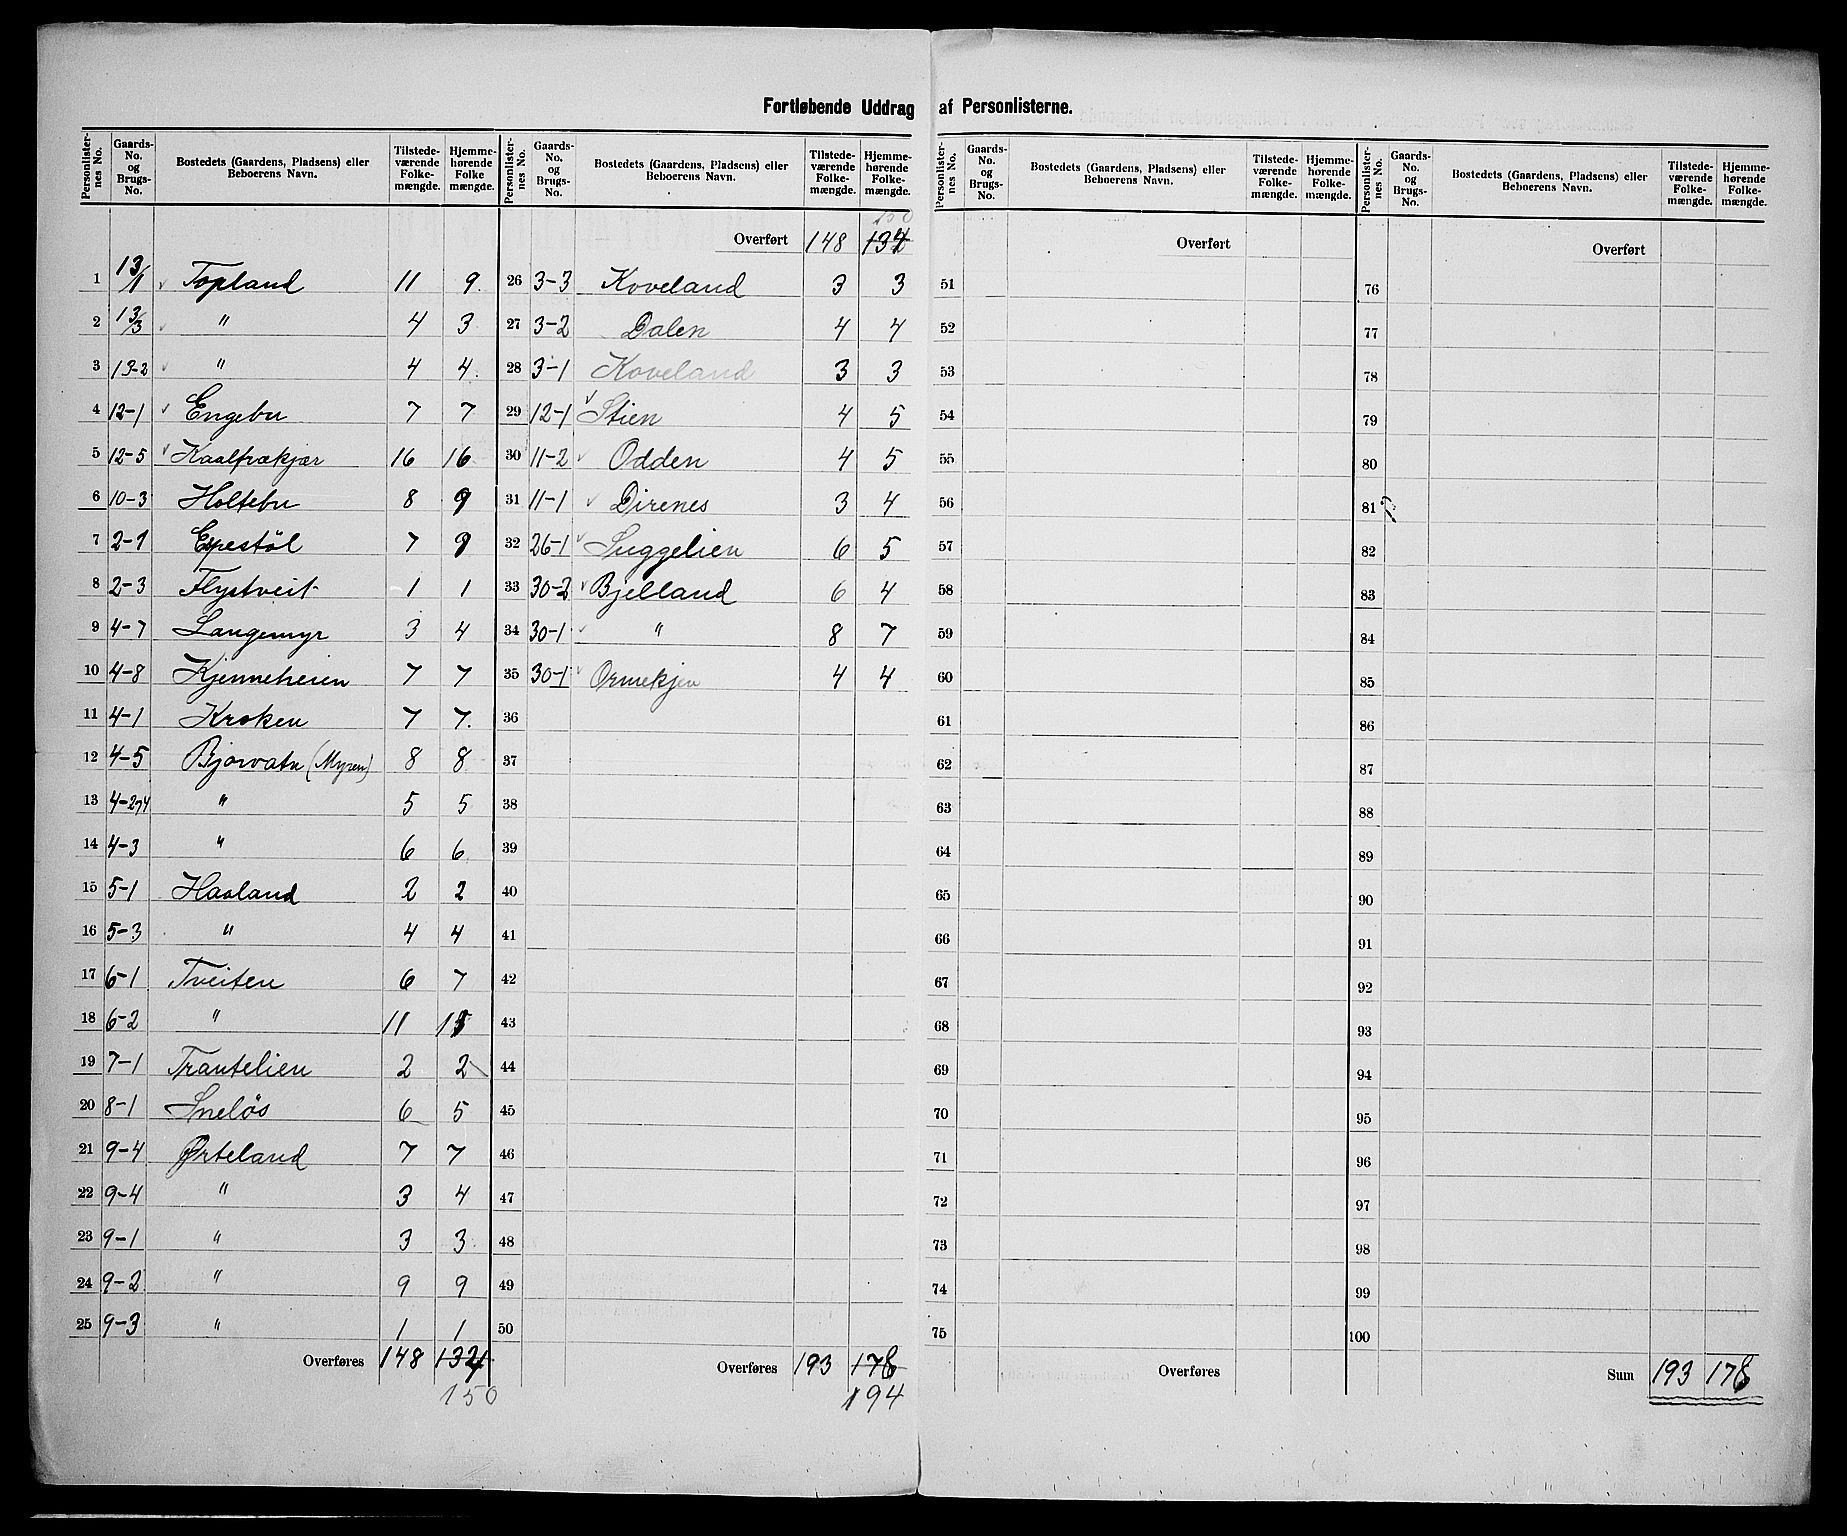 Fortløbende Uddrag af Personlisterne.
Personlister-nes No. | Gaards-No. og Brugs-No. | Bostedets (Gaardens, Pladsens) eller Beboerens Navn. | Tilstede-værende Folke-mængde. | Hjemme-hørende Folke mængde.
1 13/1 Topland 11 9
2 13/3 " 4 3
3 13-2 " 4 4
4 12-1 Engebu 7 7
5 12-5 Kaalfrækjær 16 16
6 10-3 Holtebu 8 9
7 2-1 Espestöl 7
8 2-3 Flystveit 1 1
9 4-7 Langemyr 3 4
10 4-8 Kjenneheien 7 7
11 4-1 Kroken 7 7
12 4-5 Bjorvatn (Myren) 8 8
13 4-2 " 5 5
14 4-3 " 6 6
15 5-1 Haaland 2 2
16 5-3 " 4 4
17 6-1 Tveiten 6 7
18 6-2 " 11
19 7-1 Trantelien 2 2
20 8-1 Sneløs 6 5
21 9-4 Ørteland 7 7
22 9-4 " 3 4
23 9-1 " 3 3
24 9-2 " 9 9
25 9-3 " 1 1
Overføres 148 134
150
Personlister-nes No. | Gaards-No. og Brugs-No. | Bostedets (Gaardens, Pladsens) eller Beboerens Navn. | Tilstede-værende Folke-mængde. | Hjemme-hørende Folke-mængde.
150
Overført 148 134
26 3-3 Koveland 3 3
27 3-2 Dalen 4 4
28 3-1 Koveland 3 3
29 12-1 Stien 4 5
30 11-2 Odden 4 5
31 11-1 Direnes 3 4
32 26-1 Suggelien 6 5
33 30-2 Bjelland 6 4
34 30-1 " 8 7
35 30-1 Ormekjen 4 4
36
37
38
39
40
41
42
43
44
45
46
47
48
49
50
Overføres 193 178
194
Personlister-nes No. | Gaards-No. og Brugs-No. | Bostedets (Gaardens, Pladsens) eller Beboerens Navn. | Tilstede-værende Folke-mængde. | Hjemme-hørende Folke-mængde.
Overført
51
52
53
54
55
56
57
58
59
60
61
62
63
64
65
66
67
68
69
70
71
72
73
74
75
Overføres
Personlister-nes No. | Gaards-No. og Brugs-No. | Bostedets (Gaardens, Pladsens) eller Beboerens Navn. | Tilstede-værende Folke-mængde. | Hjemme-hørende Folke-mængde.
Overført
76
77
78
79
80
81
82
83
84
85
86
87
88
89
90
91
92
93
94
95
96
97
98
99
100
Sum 193 178